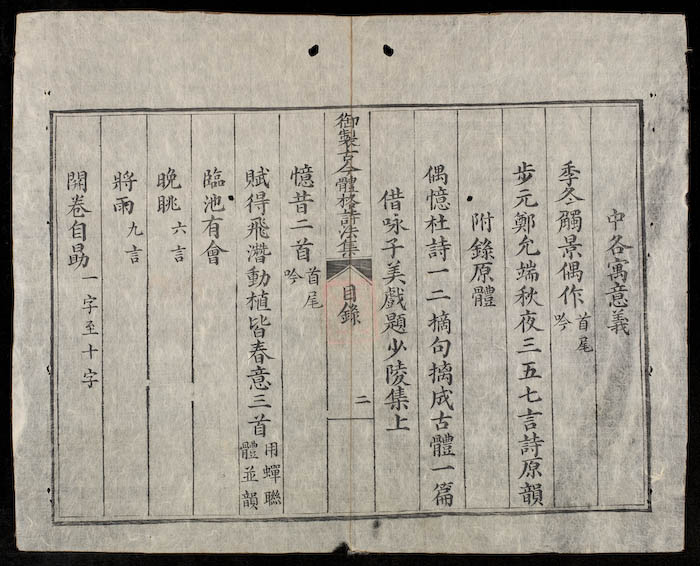 中各寓意義
季冬觸景偶作 首尾吟
步元鄭允端秋夜三五七言詩原韻
附錄原體
偶憶杜詩一二摘句摛成古體一篇
借咏子美戲題少陵集上
御製古今體格詩法集 目錄 二
憶昔二首 首尾吟
賦得飛潛動植皆春意三首 用蟬聯體並韻
臨池有會
晚眺 六言
將雨 九言
開卷自勖 一字至十字